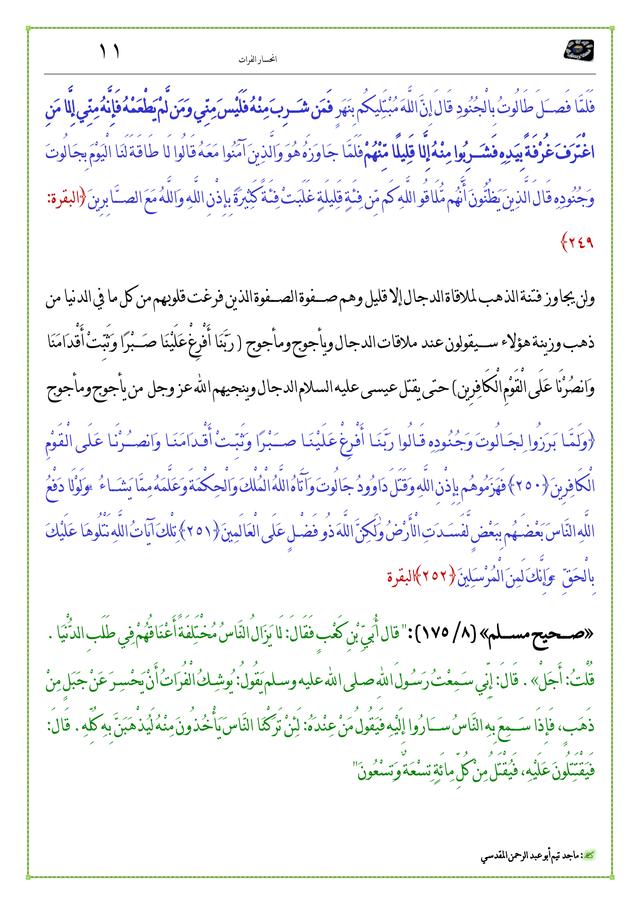 انحسار الفرات
١١
فَلَمَّا فَصَلَ طَالُوتُ بِالْجُنُودِ قَالَ إِنَّ اللَّهَ مُبْتَلِيكُم بِنَهَرٍ فَمَن شَرِبَ مِنْهُ فَلَيْسَ مِنِّي وَمَن لَّمْ يَطْعَمْهُ فَإِنَّهُ مِنِّي إِلَّا مَنِ
اغْتَرَفَ غُرْفَةً بِيَدِهِ فَشَرِبُوا مِنْهُ إِلَّا قَلِيلًا مِّنْهُمْ فَلَمَّا جَاوَزَهُ هُوَ وَالَّذِينَ آمَنُوا مَعَهُ قَالُوا لَا طَاقَةَ لَنَا الْيَوْمَ بِجَالُوتَ
وَجُنُودِهِ قَالَ الَّذِينَ يَظُنُّونَ أَنَّهُم مُّلَاقُو اللَّهِ كَم مِّن فِئَةٍ قَلِيلَةٍ غَلَبَتْ فِئَةً كَثِيرَةً بِإِذْنِ اللَّهِ وَاللَّهُ مَعَ الصَّابِرِينَ ﴿البقرة:
٢٤٩﴾
ولن يجاوز فتنة الذهب لملاقاة الدجال إلا قليل وهم صفوة الصفوة الذين فرغت قلوبهم من كل ما في الدنيا من
ذهب وزينة هؤلاء سيقولون عند ملاقات الدجال ويأجوج ومأجوج ( رَبَّنَا أَفْرِغْ عَلَيْنَا صَبْرًا وَثَبِّتْ أَقْدَامَنَا
وَانصُرْنَا عَلَى الْقَوْمِ الْكَافِرِينَ) حتى يقتل عيسى عليه السلام الدجال وينجيهم الله عز وجل من يأجوج ومأجوج
﴿وَلَمَّا بَرَزُوا لِجَالُوتَ وَجُنُودِهِ قَالُوا رَبَّنَا أَفْرِغْ عَلَيْنَا صَبْرًا وَثَبِّتْ أَقْدَامَنَا وَانصُرْنَا عَلَى الْقَوْمِ
الْكَافِرِينَ ﴿٢٥٠﴾ فَهَزَمُوهُم بِإِذْنِ اللَّهِ وَقَتَلَ دَاوُودُ جَالُوتَ وَآتَاهُ اللَّهُ الْمُلْكَ وَالْحِكْمَةَ وَعَلَّمَهُ مِمَّا يَشَاءُ وَلَوْلَا دَفْعُ
اللَّهِ النَّاسَ بَعْضَهُم بِبَعْضٍ لَّفَسَدَتِ الْأَرْضُ وَلَٰكِنَّ اللَّهَ ذُو فَضْلٍ عَلَى الْعَالَمِينَ ﴿٢٥١﴾ تِلْكَ آيَاتُ اللَّهِ نَتْلُوهَا عَلَيْكَ
بِالْحَقِّ وَإِنَّكَ لَمِنَ الْمُرْسَلِينَ ﴿٢٥٢﴾ البقرة
«صحيح مسلم» (٨/ ١٧٥): "قال أُبَيّ بْنِ كَعْبٍ فَقَالَ: لَا يَزَالُ النَّاسُ مُخْتَلِفَةً أَعْنَاقُهُمْ فِي طَلَبِ الدُّنْيَا .
قُلْتُ: أَجَلْ» . قَالَ: إِنِّي سَمِعْتُ رَسُولَ اللهِ صلى الله عليه وسلم يَقُولُ: يُوشِكُ الْفُرَاتُ أَنْ يَحْسِرَ عَنْ جَبَلٍ مِنْ
ذَهَبٍ، فَإِذَا سَمِعَ بِهِ النَّاسُ سَارُوا إِلَيْهِ فَيَقُولُ مَنْ عِنْدَهُ: لَئِنْ تَرَكْنَا النَّاسَ يَأْخُذُونَ مِنْهُ لَيُذْهَبَنَّ بِهِ كُلِّهِ . قَالَ:
فَيَقْتَتِلُونَ عَلَيْهِ، فَيُقْتَلُ مِنْ كُلِّ مِائَةٍ تِسْعَةٌ وَتِسْعُونَ"
: ماجد تيم أبو عبد الرحمن المقدسي